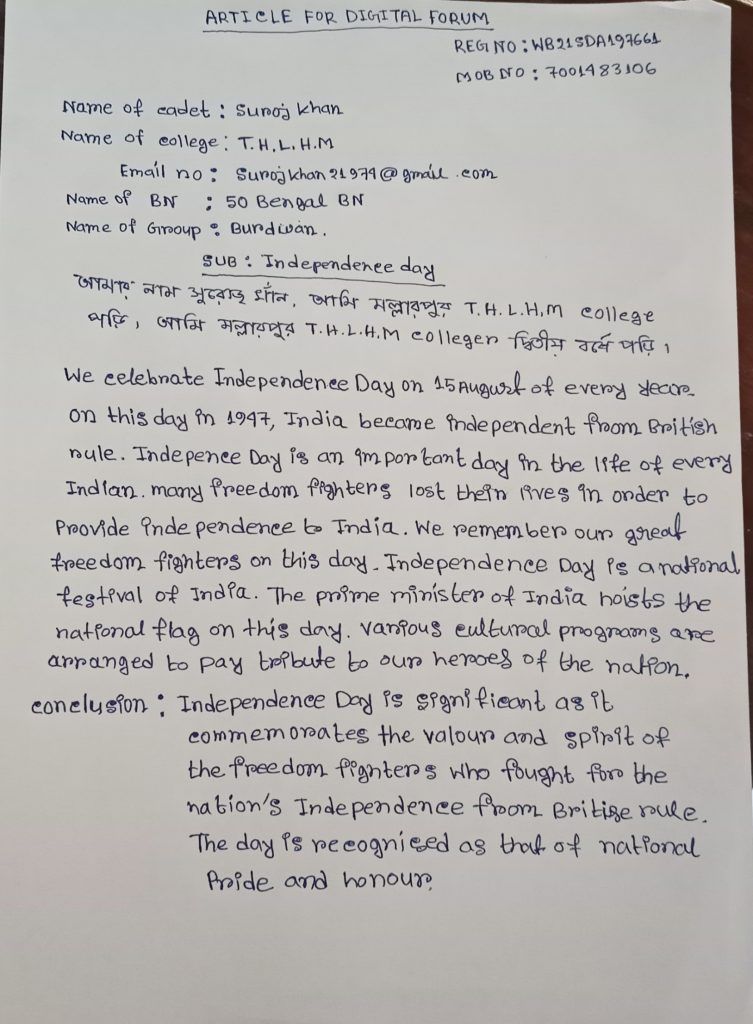 ARTICLE FOR DIGITAL FORUM
REG NO : WB21SDA197661
MOB NO : 7001483106
Name of cadet : Suroj khan
Name of college : T.H.L.H.M
Email no : Surojkhan21974@gmail.com
Name of BN : 50 Bengal BN
Name of Group : Burdwan.
SUB : Independence day
আমার নাম সুরোজ খাঁন, আমি মল্লারপুর T.H.L.H.M college
পড়ি, আমি মল্লারপুর T.H.L.H.M colleger দ্বিতীয় বর্ষে পড়ি।
We celebrate Independence Day on 15 August of every year.
on this day in 1947, India became independent from British
rule. Indepence Day is an important day in the life of every
Indian. many freedom fighters lost their lives in order to
Provide independence to India. We remember our great
freedom fighters on this day. Independence Day is a national
festival of India. The prime minister of India hoists the
national flag on this day. various cultural programs are
arranged to pay tribute to our heroes of the nation.
conclusion : Independence Day is significant as it
commemorates the valour and spirit of
the freedom fighters who fought for the
nation's Independence from Britise rule.
The day is recognised as that of national
Pride and honour.